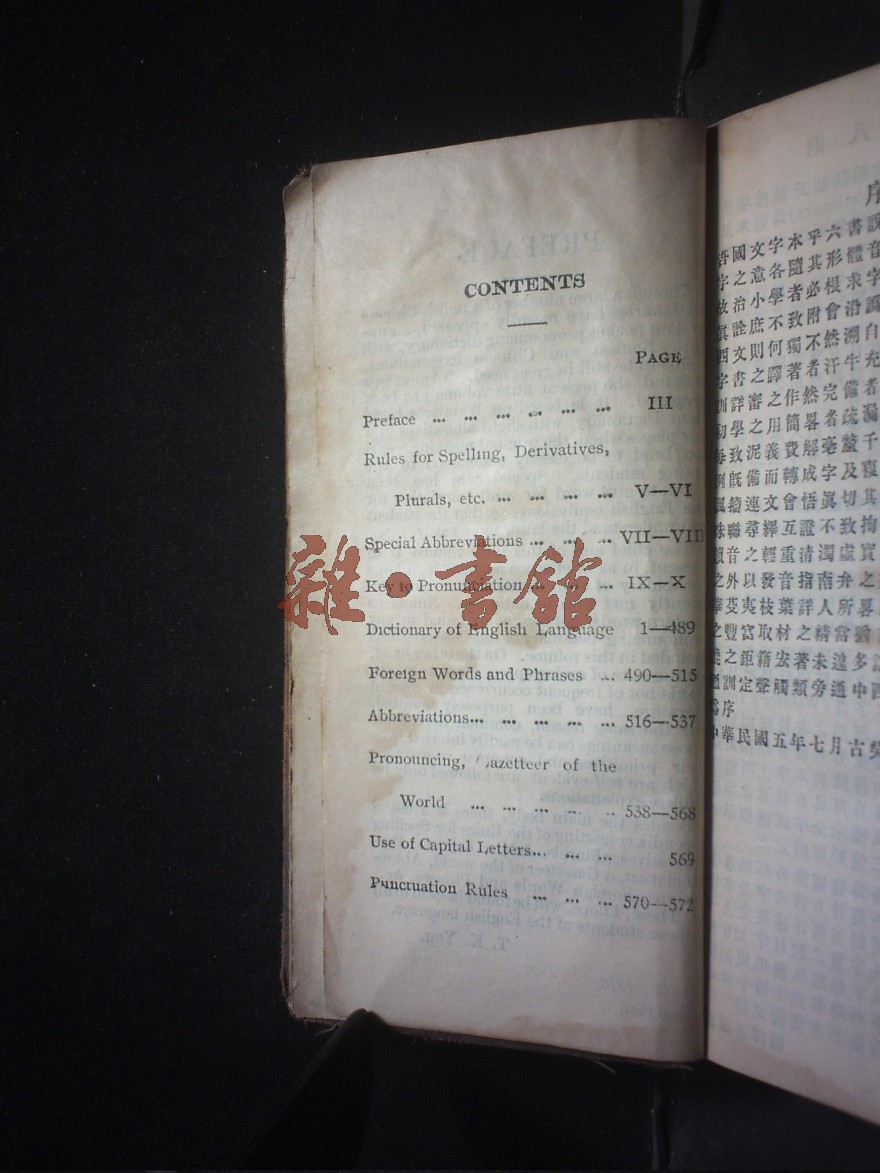 CONTENTS
PAGE
Preface ... ... ... ... ... ... III
Rules for Spelling, Derivatives,
Plurals, etc. ... ... ... ... V—VI
Special Abbreviations ... ... ... VII—VIII
Key to Pronunciation ... ... ... IX—X
Dictionary of English Language 1—489
Foreign Words and Phrases ... 490—515
Abbreviations... ... ... ... ... 516—537
Pronouncing, Gazetteer of the
World ... ... ... ... ... 538—568
Use of Capital Letters... ... ... 569
Punctuation Rules ... ... ... 570—572
雜·書館
序
吾國文字本乎六書
字之意各隨其形體音
故治小學者必根求字
眞詮庶不致附會沿
西文則何獨不然溯自
字書之譯著者汗牛充
訓詳審之作然完備者
初學之用簡畧者疏漏
每致泥義費解毫釐千
例旣備而轉成字及複
連文會悟眞切其
珠聯尋繹互證不致拘
音之輕重清濁虛實
之外以發音指南弁之
華芟夷枝葉詳人所畧
之豐富取材之精當
之距籍宏著未遑多
訓定聲觸類旁通中西
爲序
中華民國五年七月古吳
PREFACE
T. K. You.